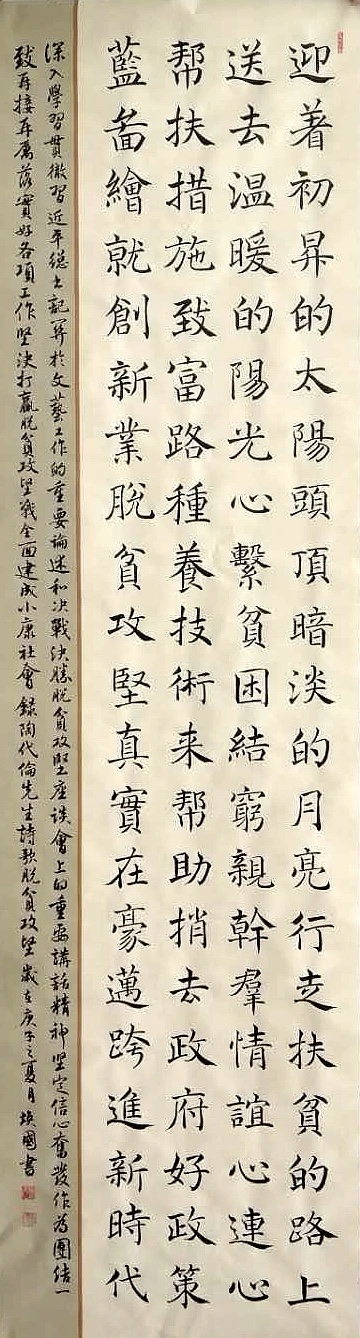 迎着初昇的太陽頭頂暗淡的月亮行走扶貧的路上
送去温暖的陽光心繫貧困結窮親幹羣情誼心連心
帮扶措施致富路種養技術来帮助捎去政府好政策
藍啚繪就創新業脫貧攻堅真實在豪邁跨進新時代
深入學習貫徹習近平總书記関於文藝工作的重要論述和决戰决勝脫貧攻堅座談會上的重要講話精神坚定信心奮發作為團结一
致再接再厲落實好各項工作坚决打贏脫貧攻坚戰全面建成小康社會錄陶代倫先生詩歌脫貧攻坚歲在庚子之夏月焕國書